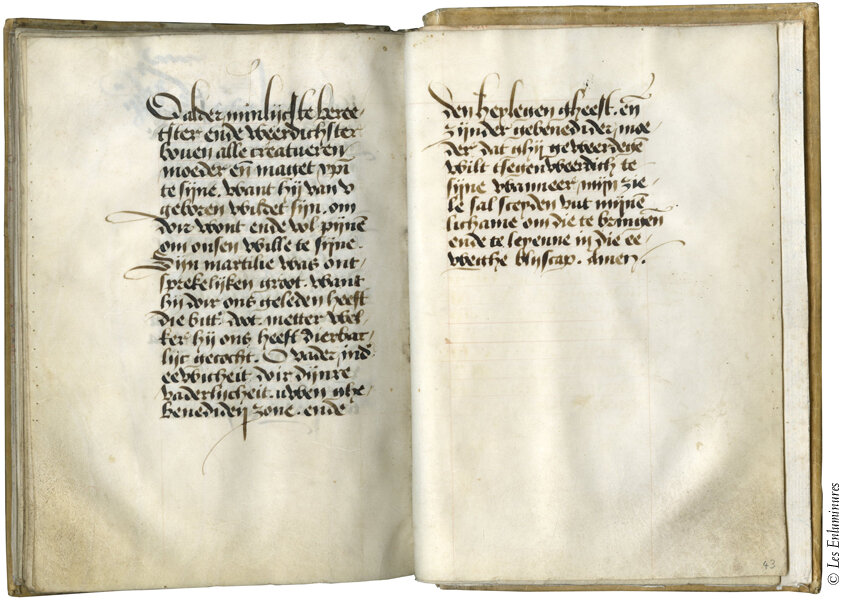 O alder minlijcste beree-
tster ende weerdichster
bouen alle creatueren
moeder eñ maget xp̄i
te sijne. want hij van v
geboren wildet sijn. om
doir wont ende vol pijnē
om onsen wille te sijne.
Sijn martilie was ont-
sprekelijken groot. want
hij doir ons geleden heeft
die bitt' doot. metter wel-
ker hij ons heeft dierbar-
lijc gecocht. O vader, ind'
eewicheit. doir dijnre
vaderlijcheit. uwen ghe-
benediden zone. ende
den heylegen gheest. eñ
zijnder gebenedider moe-
der dat ghij geweerdegē
wilt tsegenweerdich te
sijne wanneer mijn zie-
le sal sceyden vut mijnē
lichame om die te bringen
ende te leyenne in die ee-
weighe blijscap. Amen.
43
© Les Enluminures